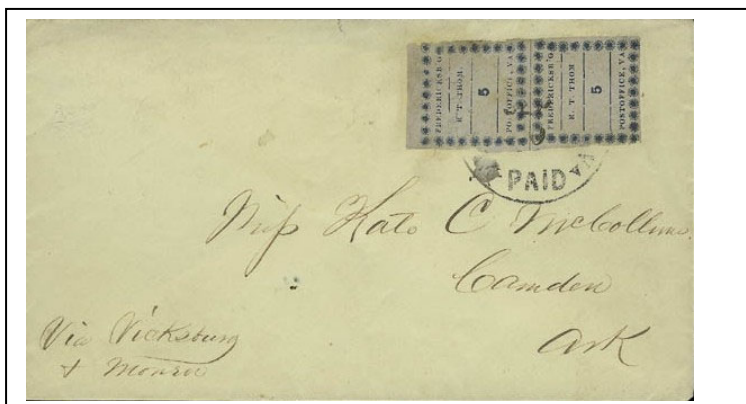 FREDERICKSB'G
R. T. THOM.
5
POSTOFFICE, VA
FREDERICKSB'G
R. T. THOM
5
POSTOFFICE, VA.
PAID
VA
Miss Kate C McCollum
Camden
Ark
Via Vicksburg
+ Monroe